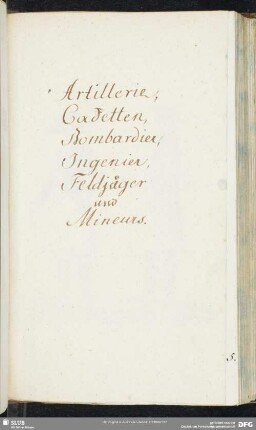 Artillerie,
Cadetten,
Bombardier,
Ingenier,
Feldjäger
und
Mineurs.
5.
SLUB
DFG